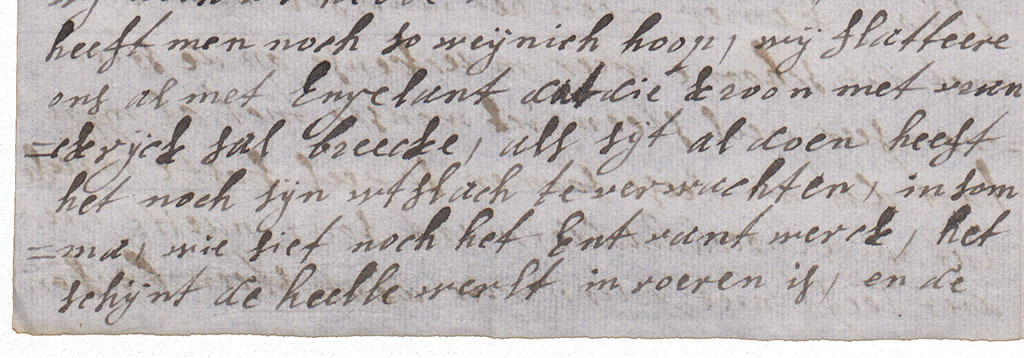 heeft men noch so weijnich hoop, wij flatteere
ons al met Engelant dat die kroon met vran
=ckryck sal breecke, als syt al doen heeft
het noch syn wtslach te verwachten, in som
=ma, wie siet noch het Ent vant werck, het
schijnt de heelle werlt in roeren is, en de